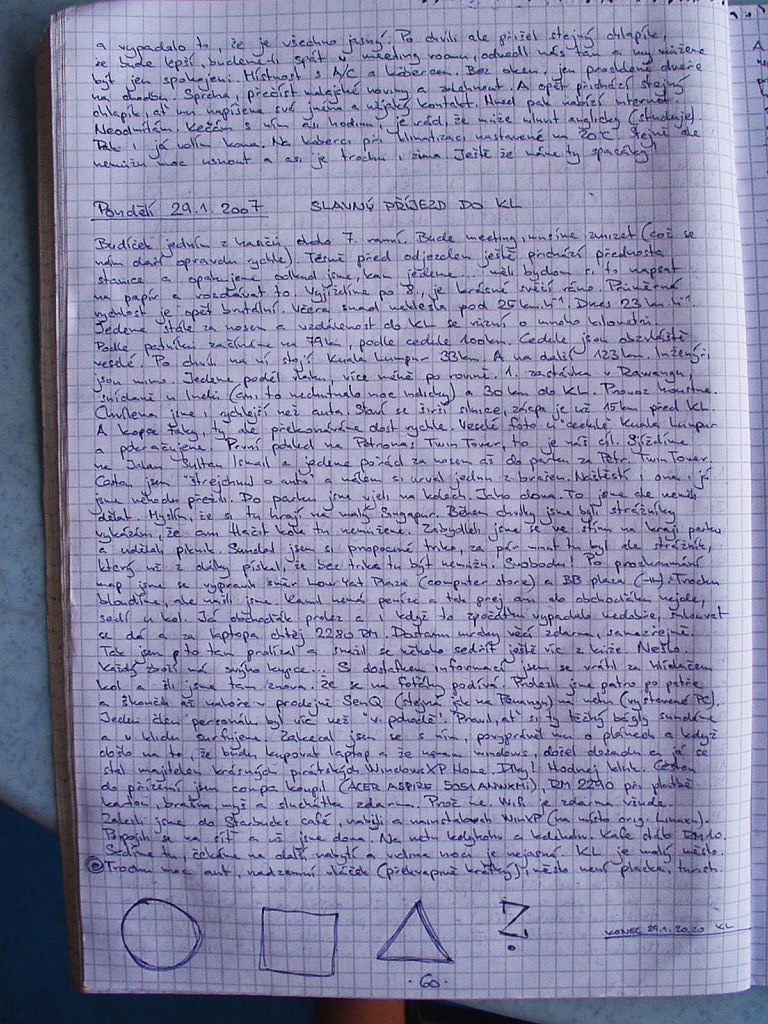 a vypadalo to, že je všechno jasný. Po chvíli ale přišel stejný chlapík,
že bude lepší, budeme-li spát v meeting roomu, odvedl nás tam a my můžeme
být jen spokojeni. Místnost s A/C a kobercem. Bez oken, jen prosklené dveře
na chodbu. Sprcha, přečíst malajské noviny a zalehnout. A opět přichází stejný
chlapík, ať mu napíšeme svá jména a nějaký kontakt. Hned pak nabízí internet.
Neodmítám. Kecám s ním asi hodinu, je rád, že může mluvit anglicky (studuje).
Pak i já volím kanafas. Na koberci při klimatizaci nastavené na 20°C. Stejně ale
nemůžu moc usnout a asi je trochu i zima. Ještě že máme ty spacáky!
Pondělí 29.1.2007 SLAVNÝ PŘÍJEZD DO KL
Budíček jedním z hasičů okolo 7. ranní. Bude meeting, musíme zmizet (což se
nám daří opravdu rychle). Těsně před odjezdem ještě přichází přednosta
stanice a opakujeme odkud jsme, kam jedeme... měli bychom si to napsat
na papír a rozdávat to. Vyjíždíme po 8., je krásné svěží ráno. Průměrná
rychlost je opět brutální. Včera snad neklesla pod 25 km.h⁻¹. Dnes 23 km.h⁻¹.
Jedeme stále za nosem a vzdálenost do KL se různí o mnoho kilometrů.
Podle patníku začínáme na 79km, podle cedule 100km. Cedule jsou obzvláště
veselé. Po chvíli na ní stojí Kuala Lumpur 33km. A na další 123km. Inženýři
jsou mimo. Jedeme podél vlaku, více méně po rovině. 1. zastávka v Rawangu,
snídaně u Indů (ani to nechutnalo moc indicky) a 30km do KL. Provoz houstne.
Chvílema jsme i rychlejší než auta. Staví se širší silnice, zácpa je už 15km před KL.
A kopce taky, ty ale překonáváme dost rychle. Veselé foto u "cedule" Kuala Lumpur
a pokračujeme. První pohled na Petronas Twin Tower, to je náš cíl. Sjíždíme
na Jalan Sultan Ismail a jedeme pořád za nosem až do parku za Petr. Twin Tower.
Cestou jsem "štrejchnul" o auto a málem si urval jednu z brašen. Naštěstí i ona i já
jsme nehodu přežili. Do parku jsme vjeli na kolech. Jako doma. To jsme ale neměli
dělat. Myslím, že si tu hrají na malý Singapur. Během chvilky jsme byli strážníky
vykázáni, že ani tlačit kola tu nemůžeme. Zabydleli jsme se ve stínu na kraji parku
a udělali piknik. Sundal jsem si propocené triko, za pár minut tu byl ale strážník,
který už z dálky pískal, že bez trika tu být nemůžu. Svoboda! Po prozkoumání
map jsme se vypravili směr Low Yat Plaza (computer store) a BB plaza (-||-). Trochu
bloudíme, ale našli jsme. Kamil nemá peníze a tak prej ani do obchoďáku nejde,
sedí u kol. Já obchoďák prolez a i když to zpočátku vypadalo nedobře, smlouvat
se dá a za laptopa chtěj 2280 RM. Dostanu mraky věcí zdarma, samozřejmě.
Tak jsem to tam prolízal a snažil se někoho sedřít ještě víc z kůže. Nešlo.
Každý zboží má svýho kupce... S dostatkem informací jsem se vrátil za hlídačem
kol a šli jsme tam znova. Že se na foťáky podívá. Prolezli jsme patro po patře
a skončili až nahoře v prodejně SenQ (stejná jak na Penangu) na netu (vystavené PC).
Jeden člen personálu byl víc než "v pohodě". Pravil, ať si ty těžký bágly sundáme
a v klidu surfujeme. Zakecal jsem se s ním, povyprávěl mu o plánech a když
došlo na to, že budu kupovat laptop a že nemám windows, došel dozadu a já se
stal majitelem krásných pirátských Windows XP Home. Díky! Hodnej kluk. Cestou
do přízemí jsem compa koupil (ACER ASPIRE 5051ANWXMi), RM 2290 při platbě
kartou, brašna, myš a sluchátka zdarma. Proč ne. WiFi je zdarma všude.
Zalezli jsme do Starbucks café, nabíjeli a nainstalovali WinXP (na místo orig. Linuxu).
Připojili se na síť a už jsme doma. Na netu kdykoliv a kdekoliv. Kafe stálo RM 10.
Sedíme tu, čekáme na další nabytí a vidina noci je nejasná. KL je malý město.
Trochu moc aut, nadzemní vláček (překvapivě krátký), město není placka, turisti.
?
KONEC 29.1. 20.20 KL
· 60 ·